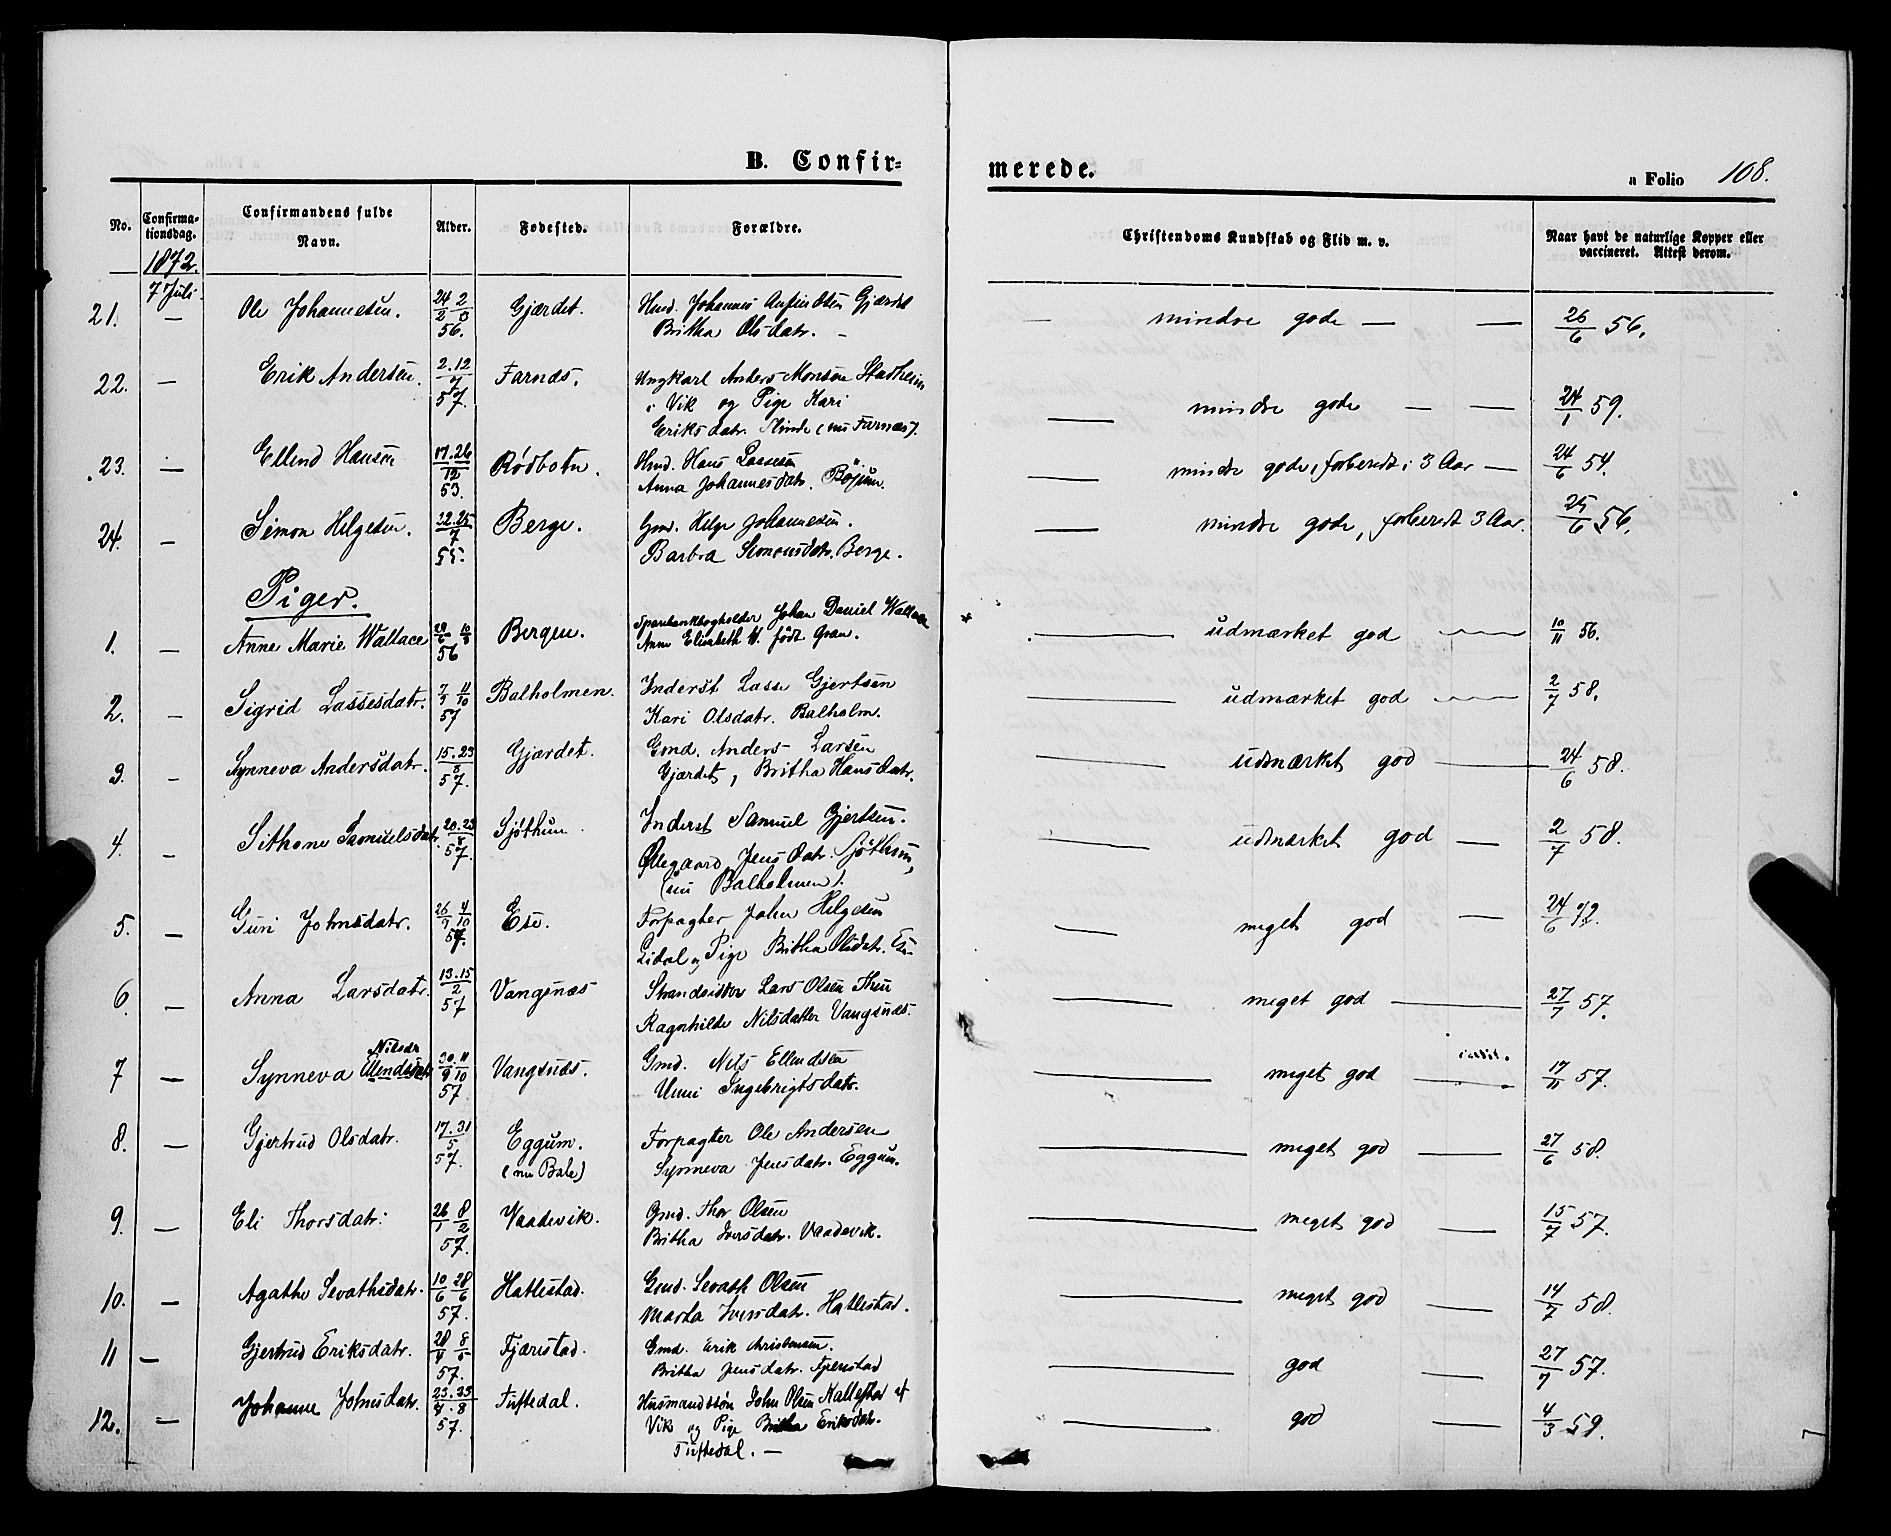 B. Confir=
merede.
a Folio 108.
No. Confirma-tionsdag. Confirmandens fulde Navn. Alder. Fødested. Forældre. Christendoms Kundskab og Flid m. v. Naar havt de naturlige Kopper eller vaccineret. Attest derom.
1872.
7 Juli
21. — Ole Johannesen. 24/2 56. Gjærdet. Hmd. Johannes Gjærdet — mindre gode — — 26/6 56.
Britha Olsdatr. —
22. — Erik Andersen. 2.12/7 57. Farnæs. Ungkarl Anders Monsen Stadheim — mindre gode — — 24/1 59.
i Vik og Pige Kari
Eriksdatr. Slinde (nu Farnæs).
23. — Ellend Hansen 17.26/12 53. Rødbotn. Hmd. Hans Lassesen — mindre gode, forberedt i 3 Aar — 24/6 54.
Anna Johannesdatr. Böjum.
24. — Simon Helgesen. 22.25/7 55. Berge. Gmd. Helge Johannesen. — mindre gode, forberedt 3 Aar. 25/6 56.
Barbra Simonsdatr. Berge.
Piger.
1. Anne Marie Wallace 56 Bergen. Sparebankbogholder Johan Daniel Wallace — udmærket god — 10/11 56.
Anne Elisabeth W. født Gran.
2. — Sigrid Lassesdatr. 7/9 11/10 57 Balholmen. Inderst Lasse Gjertsen — udmærket god — 2/7 58.
Kari Olsdatr. Balholm.
3. — Synneva Andersdatr. 15.23/8 57. Gjærdet. Gmd. Anders Larsen — udmærket god — 24/6 58.
Gjærdet, Britha Hansdatr.
4. — Sithene Samuelsdatr. 20.23/8 57. Sjøthun. Inderst Samuel Gjertsen. — udmærket god — 2/7 58.
Ølegaard Jensdatr. Sjøthun,
(nu Balholmen).
5. — Guri Johnsdatr. 26/9 4/10 57. Ese. Forpagter John Helgesen — meget god — 24/6 72.
Lidal og Pige Britha Olsdatr. Ese
6. — Anna Larsdatr. 13.15/2 57 Vangsnæs Strandsidder Lars Olsen Thue — meget god — 27/7 57.
Ragnhilde Nilsdatter Vangsnæs.
7 — Synneva Ellendsdatr Nilsdr 30/9 11/10 57 Vangsnæs. Gmd. Nils Ellendsen — meget god — 17/11 57.
Unni Ingebrigtsdatr.
8. — Gjertrud Olsdatr. 17.31/5 57. Eggum. (nu Bale) Forpagter Ole Andersen — meget god — 27/6 58.
Synneva Jensdatr. Eggum.
9. — Eli Thorsdatr. 26/1 8/2 57. Vaadevik. Gmd. Thor Olsen — meget god — 15/7 57.
Britha Iversdatr. Vaadevik.
10. — Agathe Sevathsdatr. 10/6 28/6 57. Hatlestad. Gmd. Sevath Olsen — meget god — 14/7 58.
Marta Iversdatr. Hatlestad.
11 — Gjertrud Eriksdatr. 57. Fjærestad. Gmd. Erik Christensen. — god — 27/7 57.
Britha Jensdatr. Fjærestad
12. — Johanne Johnsdatr. 57. Tuftedal. Husmandssøn John Olsen — god — 4/3 59.
Vik og Pige Britha Eriksdatr.
Tuftedal. —